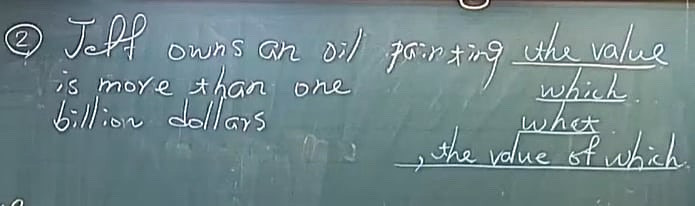 ② Jeff owns an oil painting the value
is more than one which
billion dollars what
, the value of which